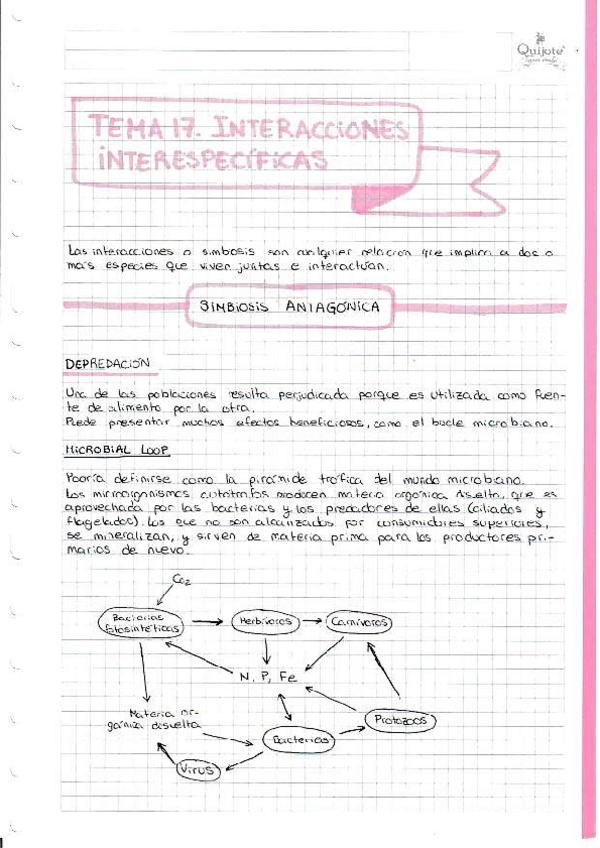 Quijote
TEMA 17. INTERACCIONES
INTERESPECÍFICAS
Las interacciones o simbosis son cualquier relación que implica a dos o
más especies que viven juntas e interactúan.
SIMBIOSIS ANTAGÓNICA
DEPREDACIÓN
Una de las poblaciones resulta perjudicada porque es utilizada como fuen-
te de alimento por la otra.
Puede presentar muchos efectos beneficiosos, como el bucle microbiano.
MICROBIAL LOOP
Podría definirse como la pirámide trófica del mundo microbiano.
Los microorganismos autótrofos producen materia orgánica disuelta, que es
aprovechada por las bacterias y los predadores de ellas (ciliados y
flagelados). Los que no son alcanzados por consumidores superiores,
se mineralizan, y sirven de materia prima para los productores pri-
marios de nuevo.
CO2
Bacterias
fotosintéticas
Herbívoros
Carnívoros
N, P, Fe
Materia or-
gánica disuelta
Protozoos
Bacterias
Virus